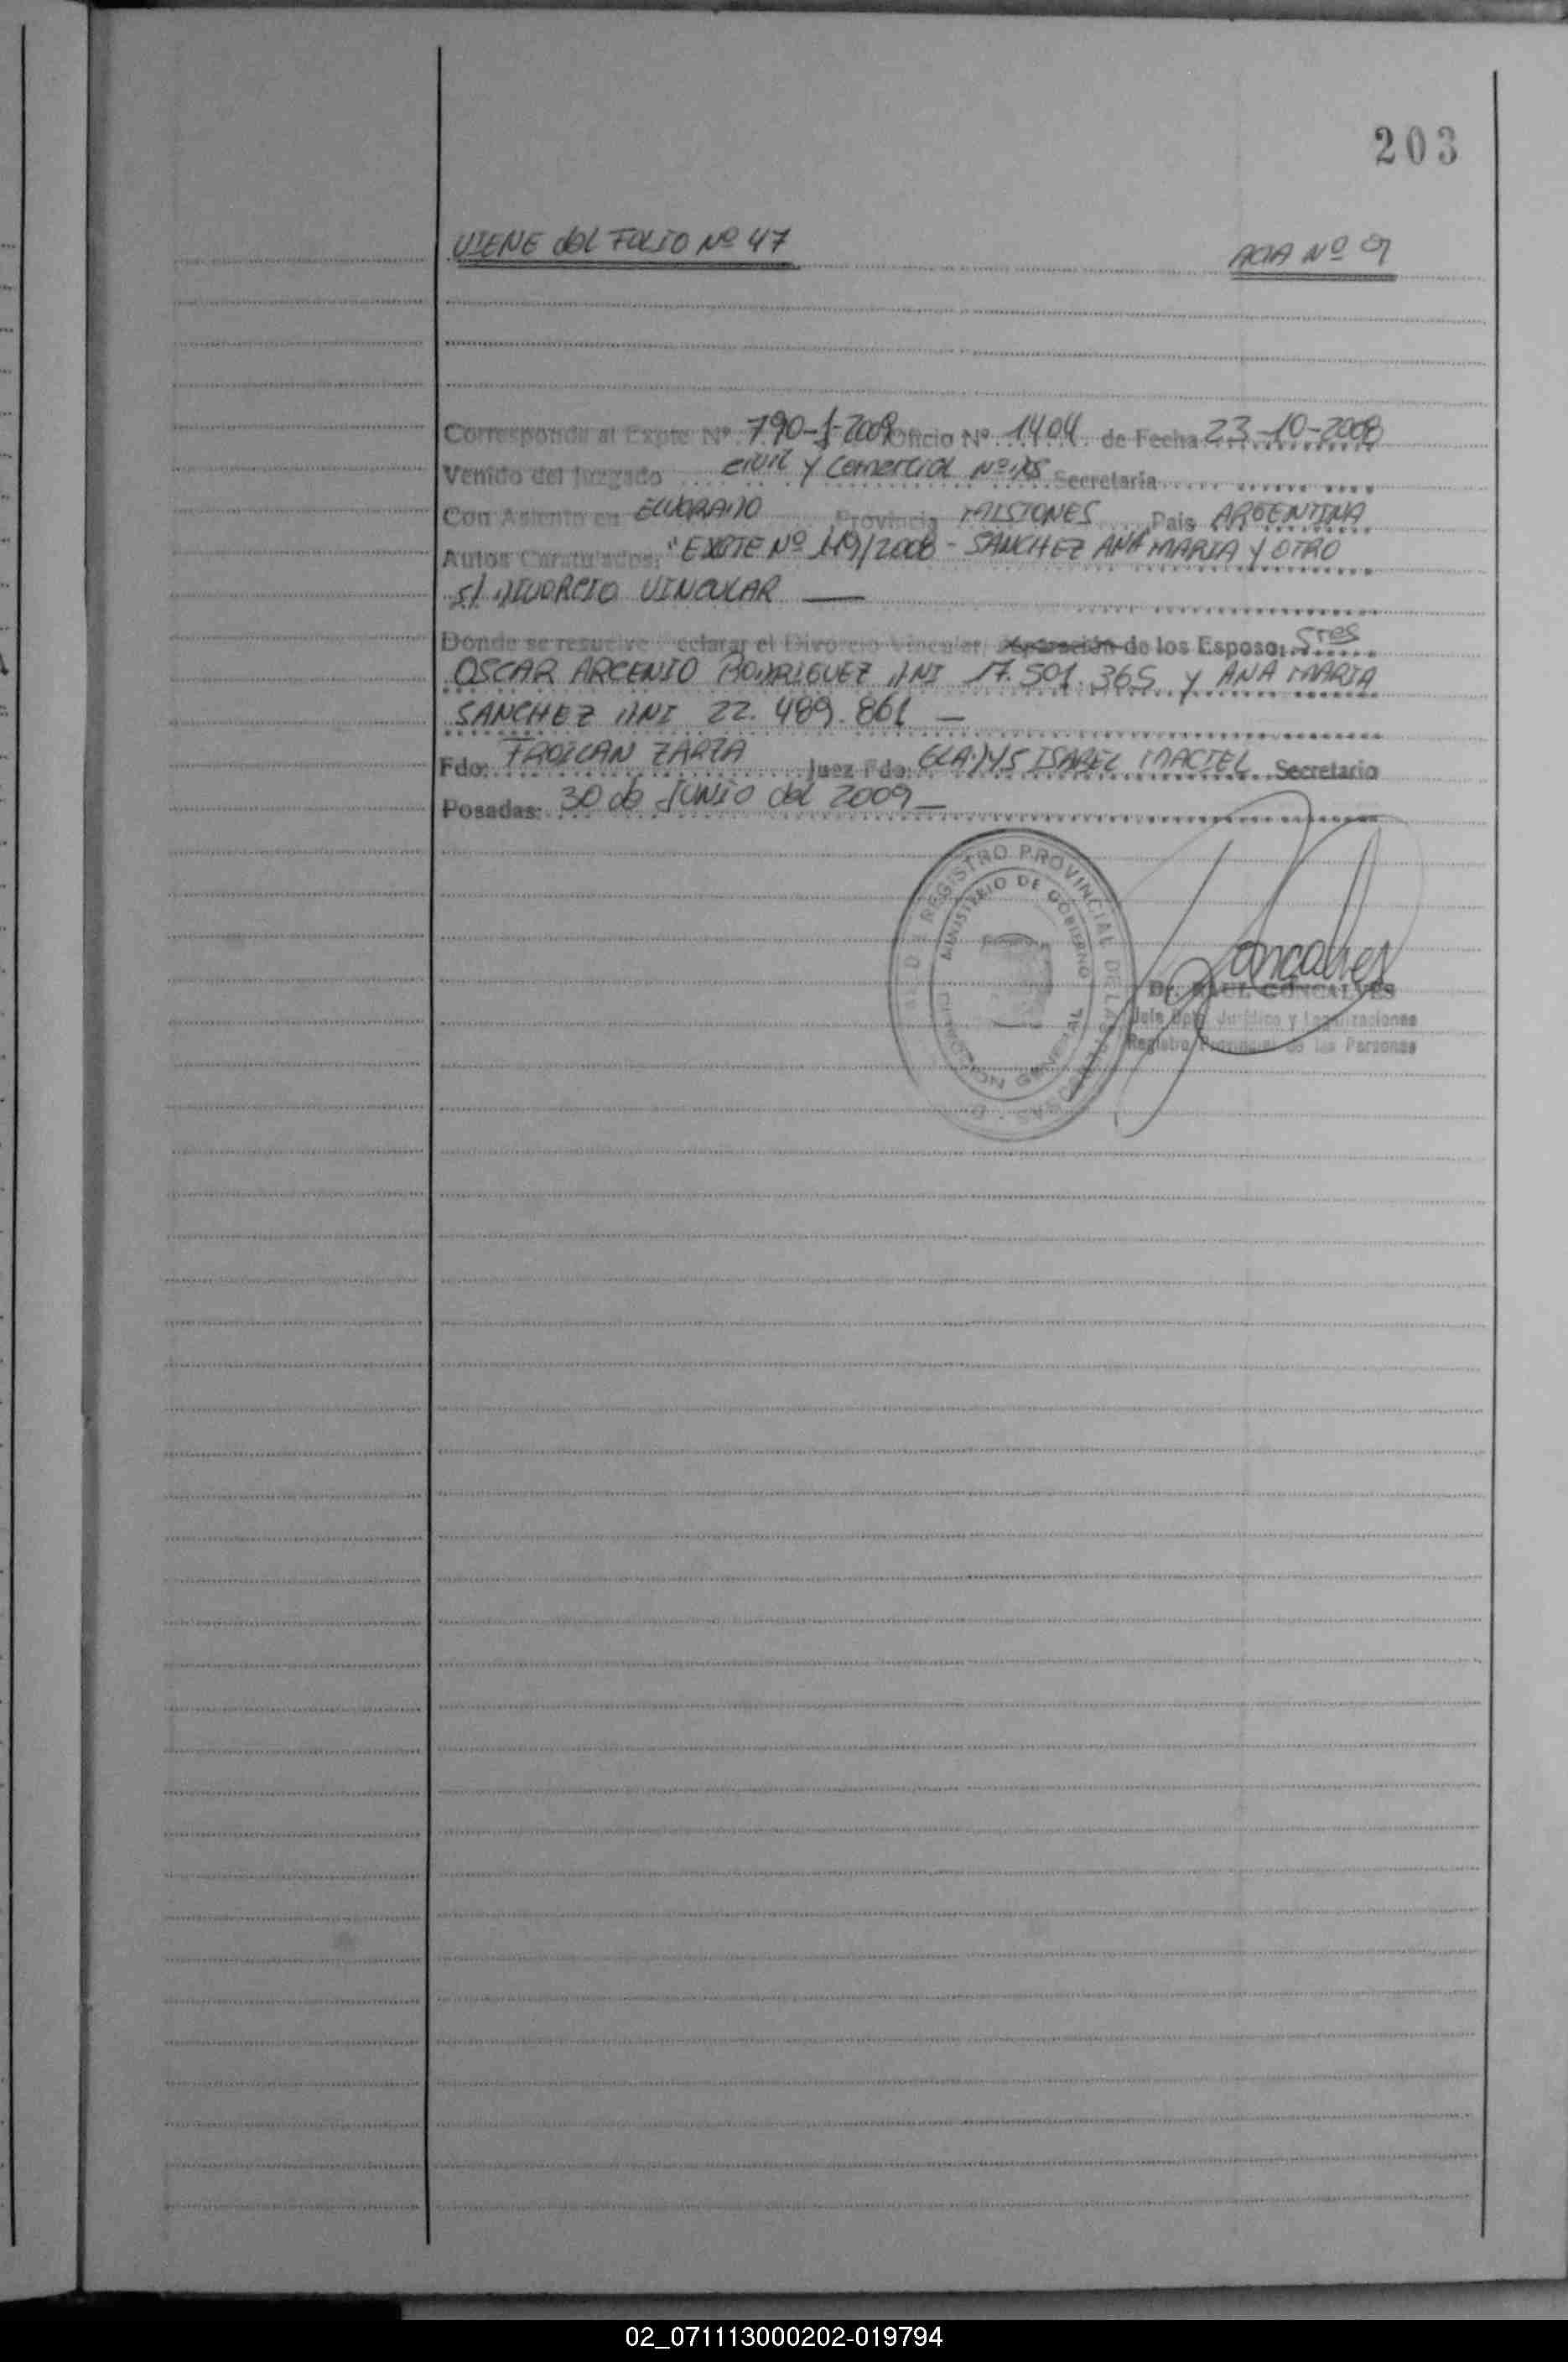 203
VIENE del FOLIO Nº 47 ACTA Nº 9
Corresponde al Expte Nº 790-J-2009 Oficio Nº 1404 de Fecha 23-10-2008
Venido del Juzgado civil y Comercial Nº Secretaria
Con Asiento en ELDORADO Provincia MISIONES Pais ARGENTINA
Autos Caratulados: "EXPTE Nº 119/2008 - SANCHEZ ANA MARIA Y OTRO
S/ DIVORCIO VINCULAR —
Donde se resuelve declarar el Divorcio Vincular, Separación de los Esposo: Sres
OSCAR ARCENIO RODRIGUEZ DNI 17.501.365 y ANA MARIA
SANCHEZ DNI 22.489.861 —
Fdo: FROILAN ZARZA Juez Fdo: GLADYS ISABEL MACIEL Secretario
Posadas: 30 de JUNIO del 2009 —
REGISTRO PROVINCIAL DE LAS PERSONAS
MINISTERIO DE GOBIERNO
DIRECCION GENERAL
Goncalves
Dr. RAUL GONCALVES
Jefe Dpto. Jurídico y Legalizaciones
Registro Provincial de las Personas
02_071113000202-019794